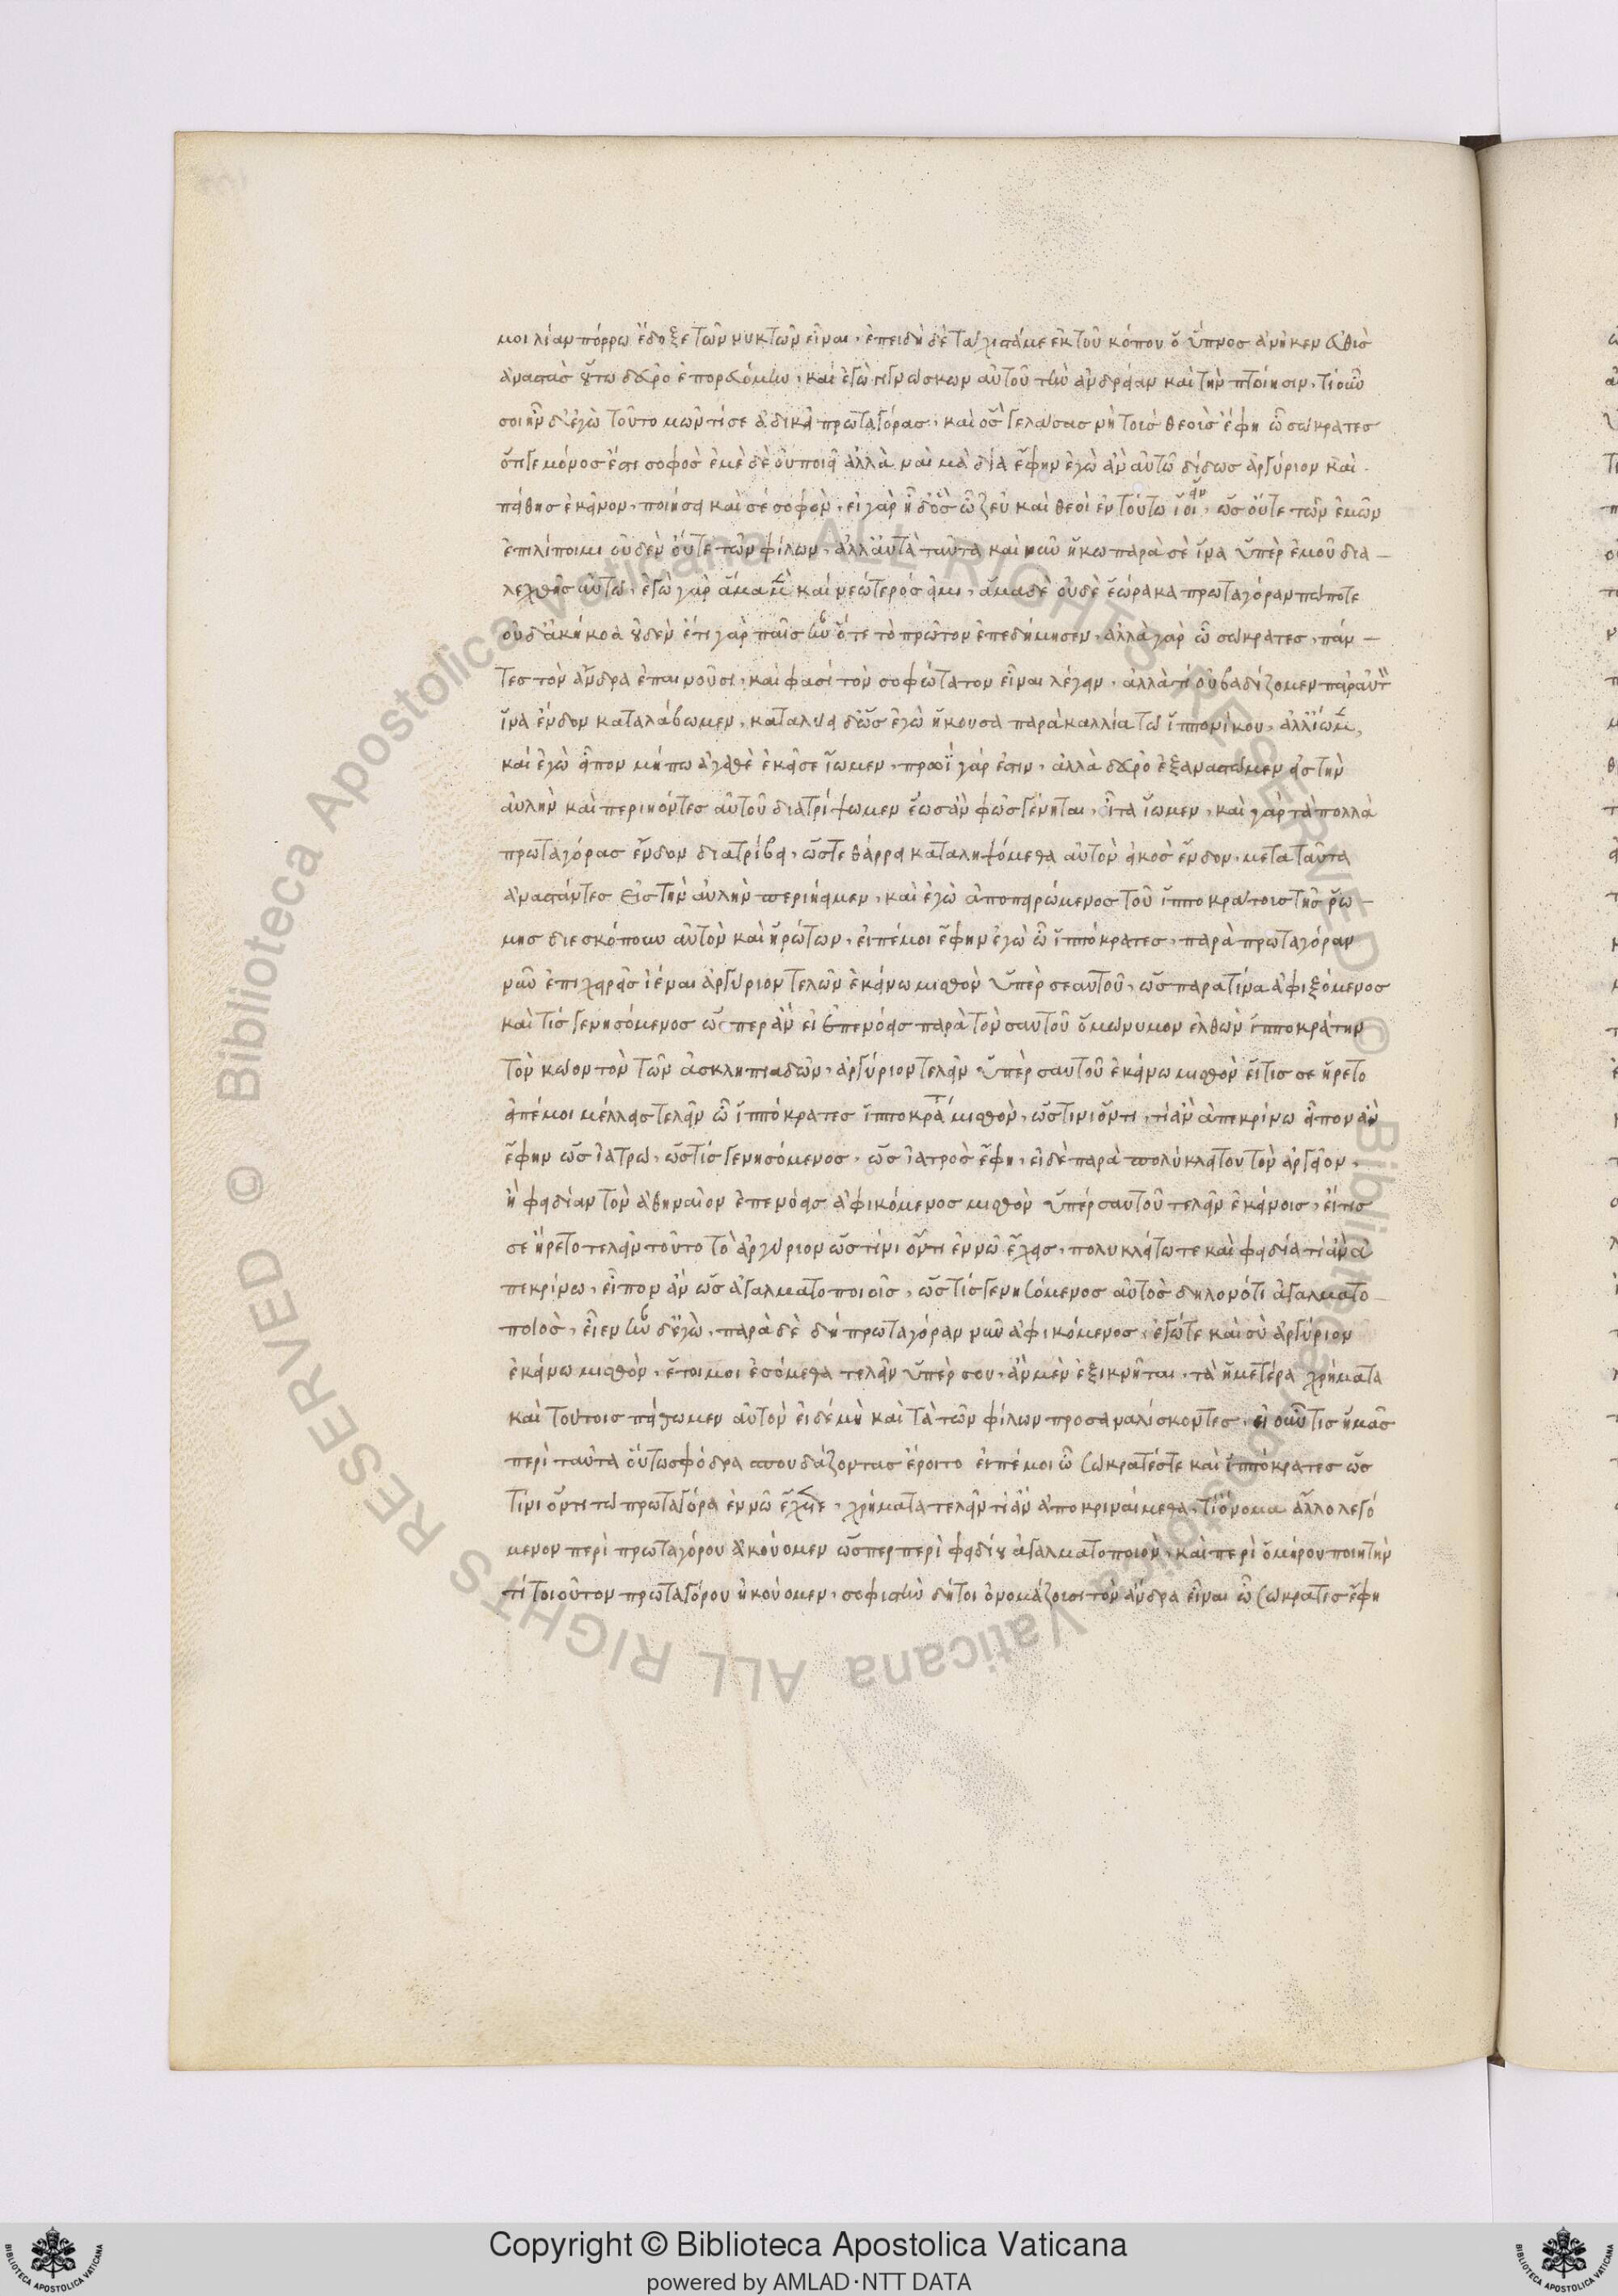 μοι λίαν πόρρω ἔδοξε τῶν νυκτῶν εἶναι, ἐπειδὴ δὲ τάχιστά με ἐκ τοῦ κόπου ὁ ὕπνος ἀνῆκεν εὐθὺς
ἀναστὰς οὕτω δεῦρο ἐπορευόμην, καὶ ἐγὼ γιγνώσκων αὐτοῦ τὴν ἀνδρείαν καὶ τὴν πτοίησιν, τί οὖν
σοι ἦν δ' ἐγὼ τοῦτο μῶν τί σε ἀδικεῖ πρωταγόρας, καὶ ὃς γελάσας νὴ τοὺς θεοὺς ἔφη ὦ σώκρατες
ὅτι γε μόνος ἐστὶ σοφὸς ἐμὲ δὲ οὐ ποιεῖ ἀλλὰ ναὶ μὰ δία ἔφην ἐγὼ ἂν αὐτῶ δίδως ἀργύριον καὶ
πείθης ἐκεῖνον, ποιήσει καὶ σὲ σοφὸν, εἰ γὰρ ἦ δ' ὃς ὦ ζεῦ καὶ θεοὶ ἐν τούτω εἴη, ὡς οὔτε τῶν ἐμῶν
ἐπιλίποιμι οὐδὲν οὔτε τῶν φίλων, ἀλλ' αὐτὰ ταῦτα καὶ νῦν ἥκω παρὰ σὲ ἵνα ὑπὲρ ἐμοῦ δια–
λεχθῆς αὐτῶ, ἐγὼ γὰρ ἅμα μὲν καὶ νεώτερός εἰμι, ἅμα δὲ οὐδὲ ἑώρακα πρωταγόραν πώποτε
οὐδ' ἀκήκοα οὐδὲν ἔτι γὰρ παῖς ἦν ὅτε τὸ πρῶτον ἐπεδήμησεν, ἀλλὰ γὰρ ὦ σώκρατες, πάν–
τες τὸν ἄνδρα ἐπαινοῦσι, καὶ φασὶ τὸν σοφώτατον εἶναι λέγειν, ἀλλὰ τί οὐ βαδίζομεν παρ' αὐτὸν
ἵνα ἔνδον καταλάβωμεν, καταλύει δ' ὡς ἐγὼ ἤκουσα παρὰ καλλία τῶ ἱππονίκου, ἀλλ' ἴωμεν,
καὶ ἐγὼ εἶπον μήπω ἀγαθὲ ἐκεῖσε ἴωμεν, πρωῒ γάρ ἐστιν, ἀλλὰ δεῦρο ἐξαναστῶμεν εἰς τὴν
αὐλὴν καὶ περιιόντες αὐτοῦ διατρίψωμεν ἕως ἂν φῶς γένηται, εἶτα ἴωμεν, καὶ γὰρ τὰ πολλὰ
πρωταγόρας ἔνδον διατρίβει, ὥστε θάρρει καταληψόμεθα αὐτὸν εἰκὸς ἔνδον, μετὰ ταῦτα
ἀναστάντες εἰς τὴν αὐλὴν περιῆειμεν, καὶ ἐγὼ ἀποπειρώμενος τοῦ ἱπποκράτους τῆς ῥώ–
μης διεσκόπουν αὐτὸν καὶ ἠρώτων, εἰπέ μοι ἔφην ἐγὼ ὦ ἱππόκρατες, παρὰ πρωταγόραν
νῦν ἐπιχειρεῖς ἰέναι ἀργύριον τελῶν ἐκείνω μισθὸν ὑπὲρ σεαυτοῦ, ὡς παρὰ τίνα ἀφιξόμενος
καὶ τίς γενησόμενος ὥσπερ ἂν εἰ ἐπενόεις παρὰ τὸν σαυτοῦ ὁμώνυμον ἐλθὼν ἱπποκράτην
τὸν κῶον τὸν τῶν ἀσκληπιαδῶν, ἀργύριον τελεῖν ὑπὲρ σαυτοῦ ἐκείνω μισθὸν εἴ τις σε ἤρετο
εἰπέ μοι μέλλεις τελεῖν ὦ ἱππόκρατες ἱπποκράτει μισθὸν, ὡς τίνι ὄντι, τί ἂν ἀπεκρίνω εἶπον ἂν
ἔφην ὡς ἰατρῶ, ὡς τίς γενησόμενος, ὡς ἰατρὸς ἔφη, εἰ δὲ παρὰ πολύκλειτον τὸν ἀργεῖον,
ἢ φειδίαν τὸν ἀθηναῖον ἐπενόεις ἀφικόμενος μισθὸν ὑπὲρ σαυτοῦ τελεῖν ἐκείνοις, εἴ τις
σε ἤρετο τελεῖν τοῦτο τὸ ἀργύριον ὡς τίνι ὄντι ἐν νῶ ἔχεις, πολυκλείτω τε καὶ φειδία τί ἂν ἀ
πεκρίνω, εἶπον ἂν ὡς ἀγαλματοποιοῖς, ὡς τίς γενησόμενος αὐτὸς δηλονότι ἀγαλματο–
ποιὸς, εἶεν ἦν δ' ἐγὼ, παρὰ δὲ δὴ πρωταγόραν νῦν ἀφικόμενος, ἐγώ τε καὶ σὺ ἀργύριον
ἐκείνω μισθὸν, ἕτοιμοι ἐσόμεθα τελεῖν ὑπὲρ σου, ἂν μὲν ἐξικνῆται, τὰ ἡμέτερα χρήματα
καὶ τούτοις πείθωμεν αὐτὸν εἰ δὲ μὴ καὶ τὰ τῶν φίλων προσαναλίσκοντες, εἰ οὖν τις ἡμᾶς
περὶ ταῦτα οὕτω σφόδρα σπουδάζοντας ἔροιτο εἰπέ μοι ὦ σώκρατές τε καὶ ἱππόκρατες ὡς
τίνι ὄντι τῶ πρωταγόρα ἐν νῶ ἔχετε, χρήματα τελεῖν τί ἂν ἀποκριναίμεθα, τί ὄνομα ἄλλο λεγό
μενον περὶ πρωταγόρου ἀκούομεν ὥσπερ περὶ φειδίου ἀγαλματοποιὸν, καὶ περὶ ὁμήρου ποιητὴν
τί τοιοῦτον πρωταγόρου ἠκούομεν, σοφιστὴν δή τοι ὀνομάζουσι τὸν ἄνδρα εἶναι ὦ σώκρατες ἔφη
Copyright © Biblioteca Apostolica Vaticana
powered by AMLAD·NTT DATA